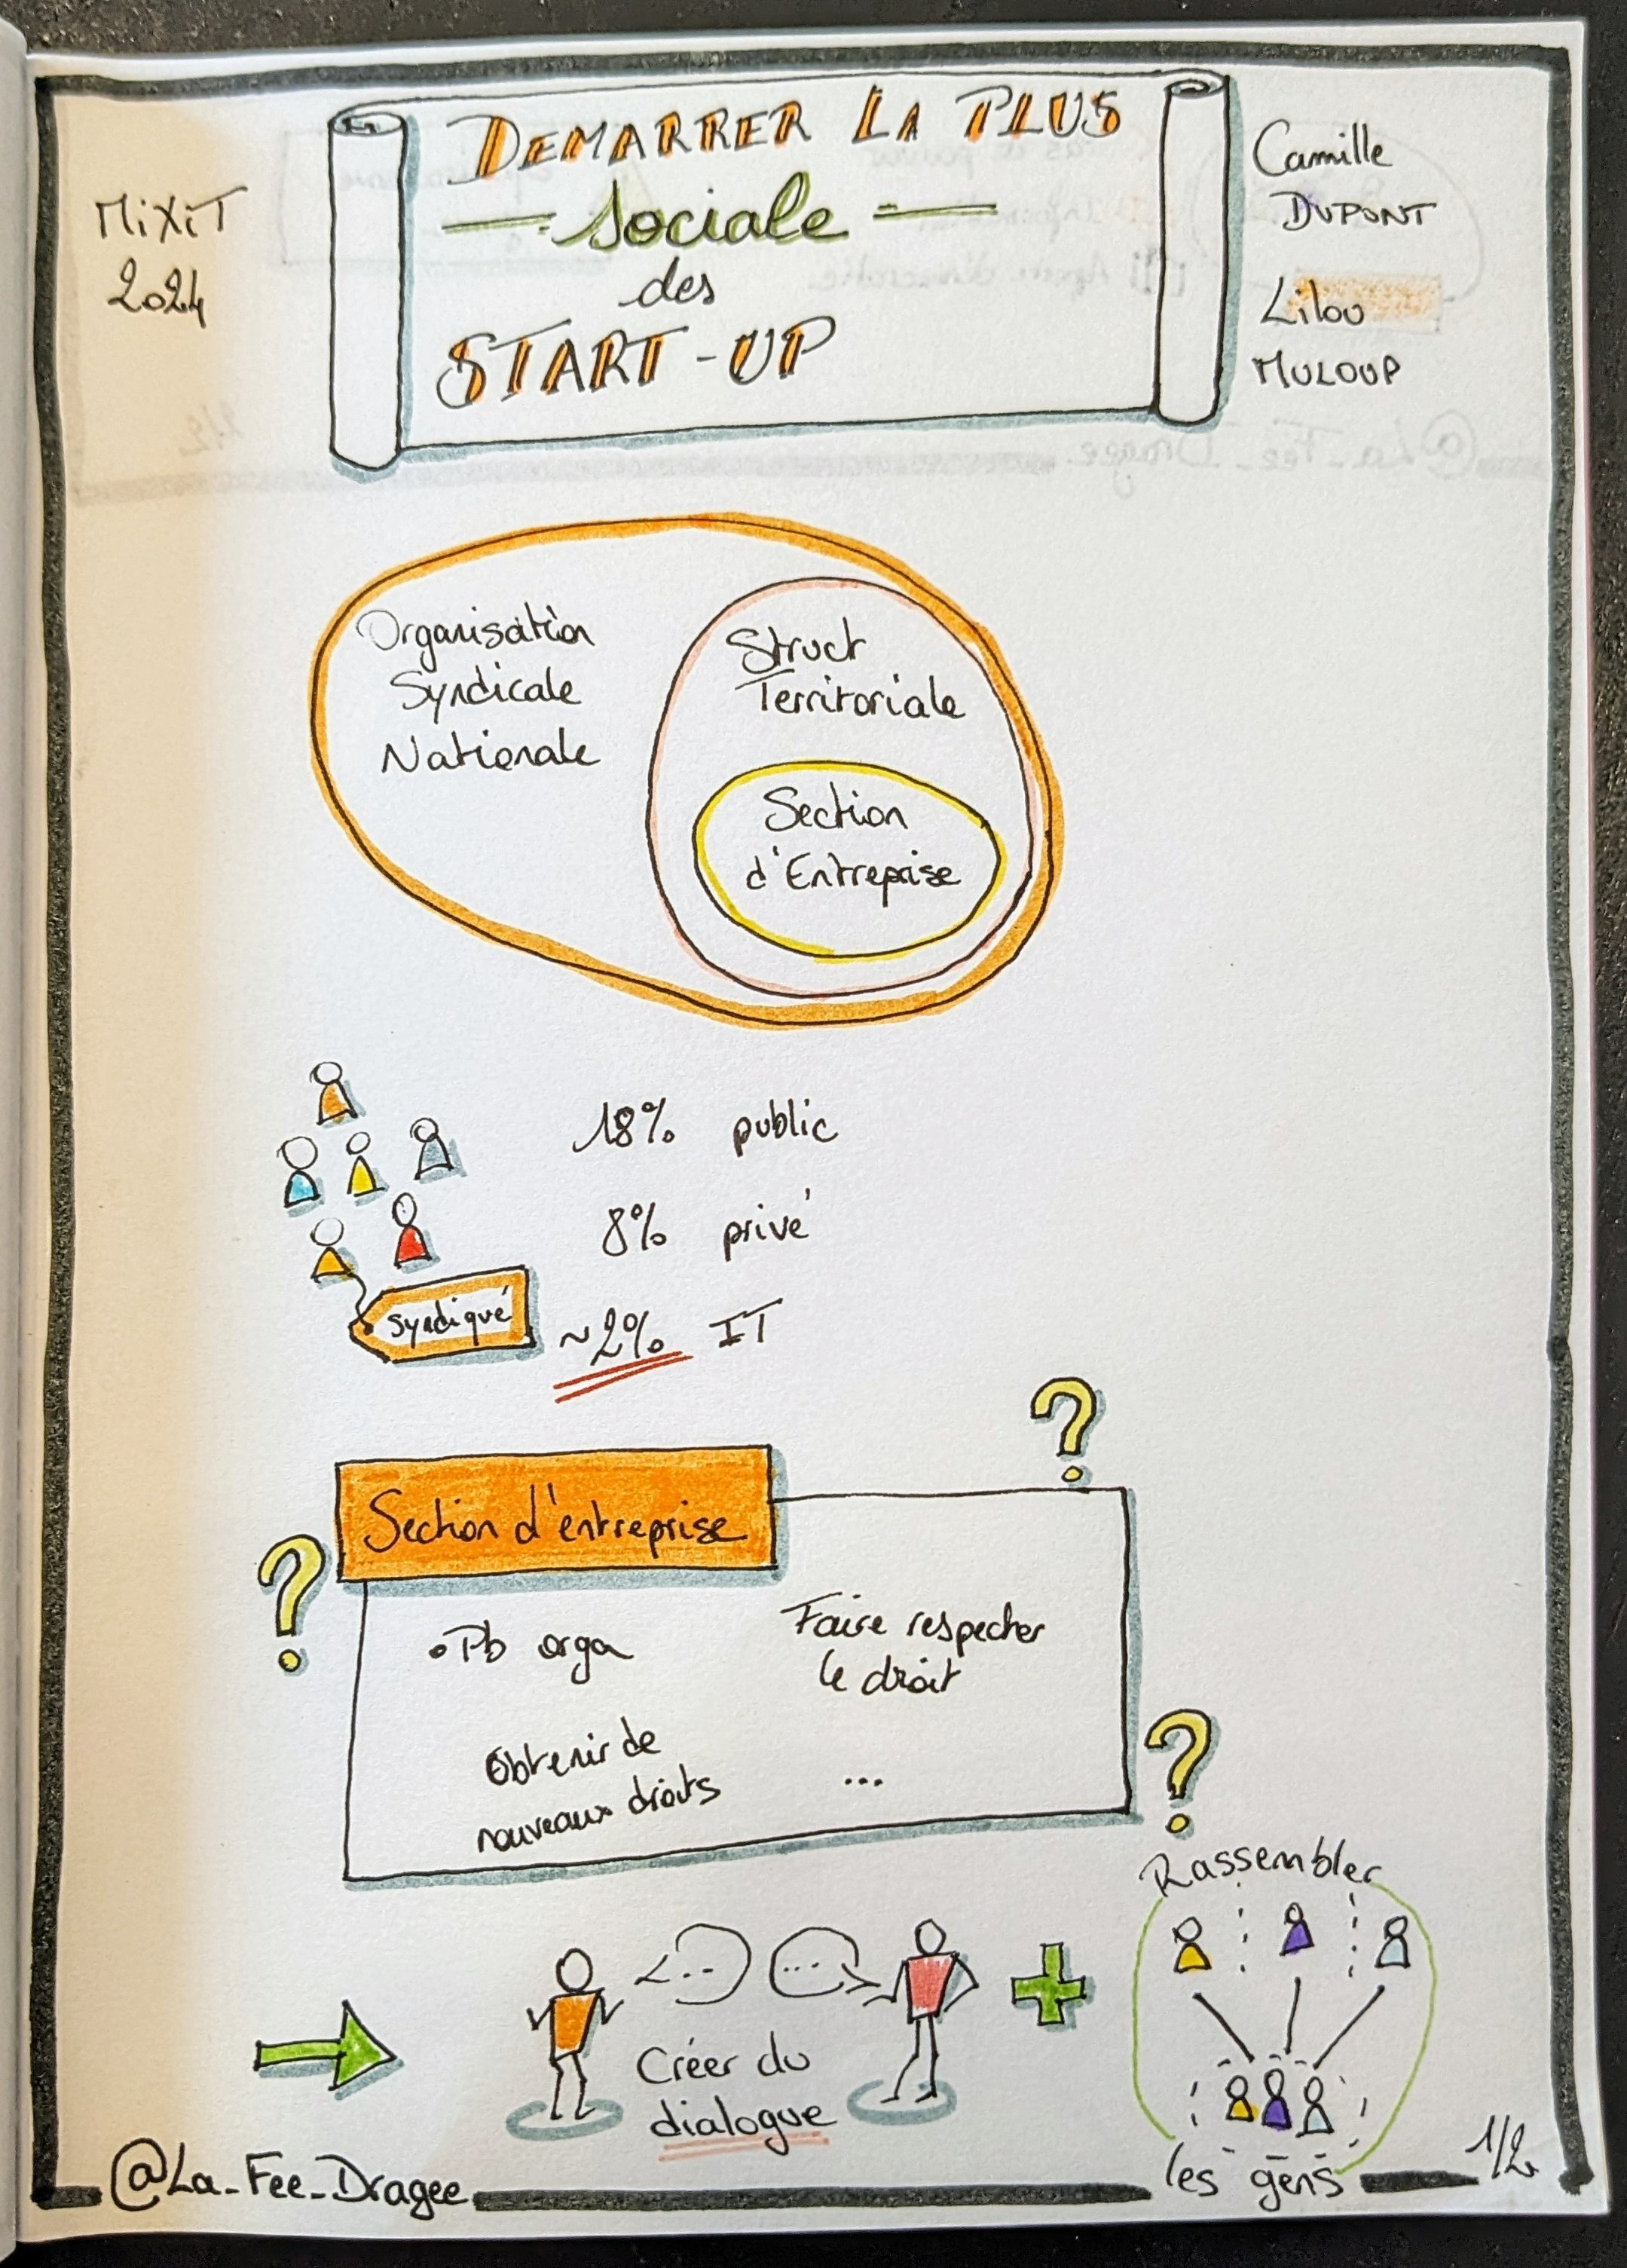 MiXiT
2024
DEMARRER LA PLUS
sociale
des
START-UP
Camille
DUPONT
Lilou
MULOUP
Organisation
Syndicale
Nationale
Struct
Territoriale
Section
d'Entreprise
18% public
8% privé
syndiqué
~2% IT
?
Section d'entreprise
?
• Pb orga
Faire respecter
le droit
Obtenir de
nouveaux droits
...
?
Rassembler
...
...
+
Créer du
dialogue
les gens
@La_Fee_Dragee
1/2